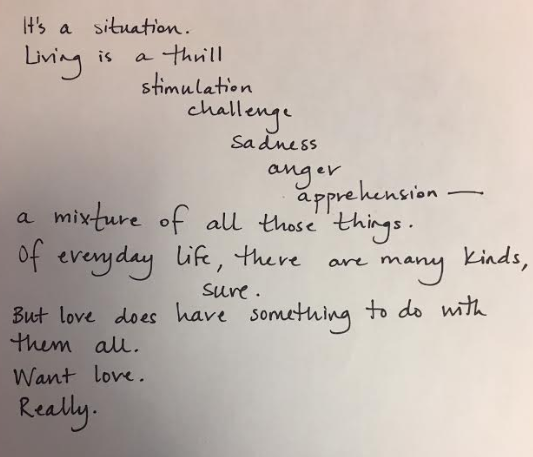 It's a situation.
Living is a thrill
stimulation
challenge
sadness
anger
apprehension —
a mixture of all those things.
Of everyday life, there are many kinds,
sure.
But love does have something to do with
them all.
Want love.
Really.